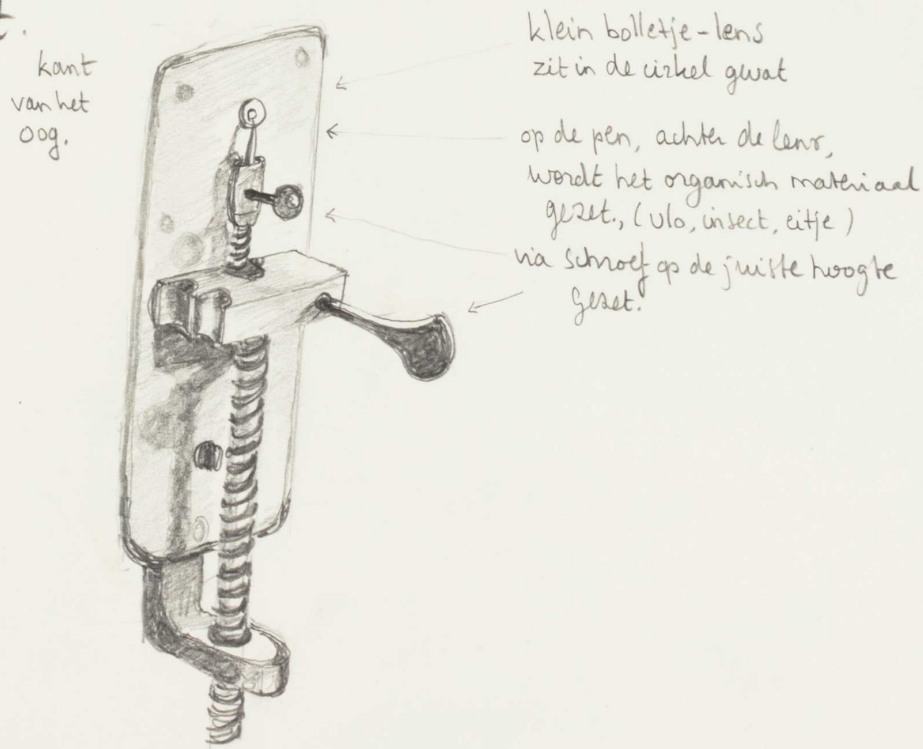 t.
kant
van het
oog.
klein bolletje-lens
zit in de cirkel gevat
op de pen, achter de lens,
wordt het organisch materiaal
gezet., (vlo, insect, eitje)
via schroef op de juiste hoogte
gezet.